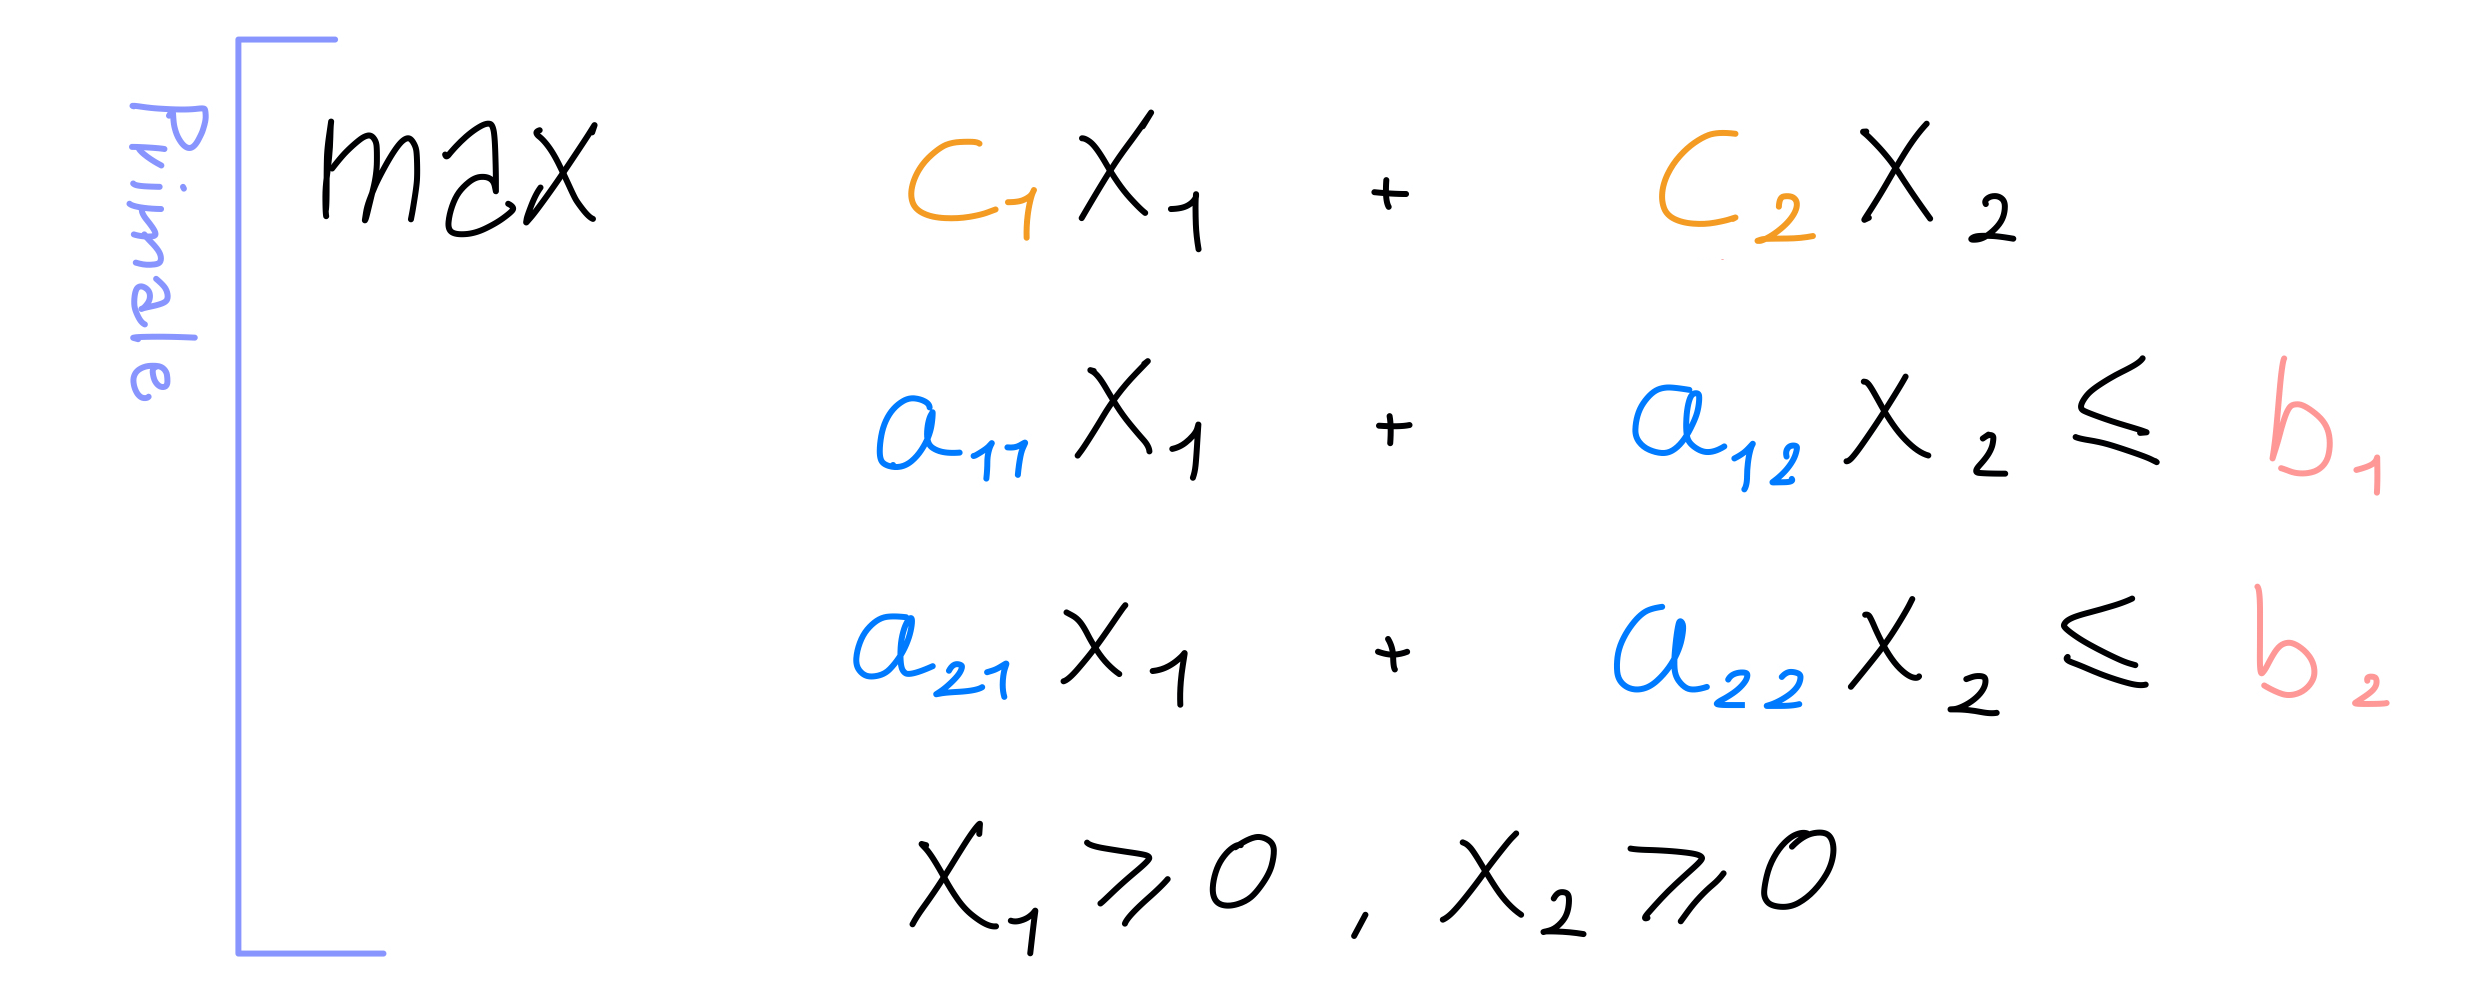 Primale
max c₁ x₁ + c₂ x₂
a₁₁ x₁ + a₁₂ x₂ ≤ b₁
a₂₁ x₁ + a₂₂ x₂ ≤ b₂
x₁ ⩾ 0 , x₂ ⩾ 0